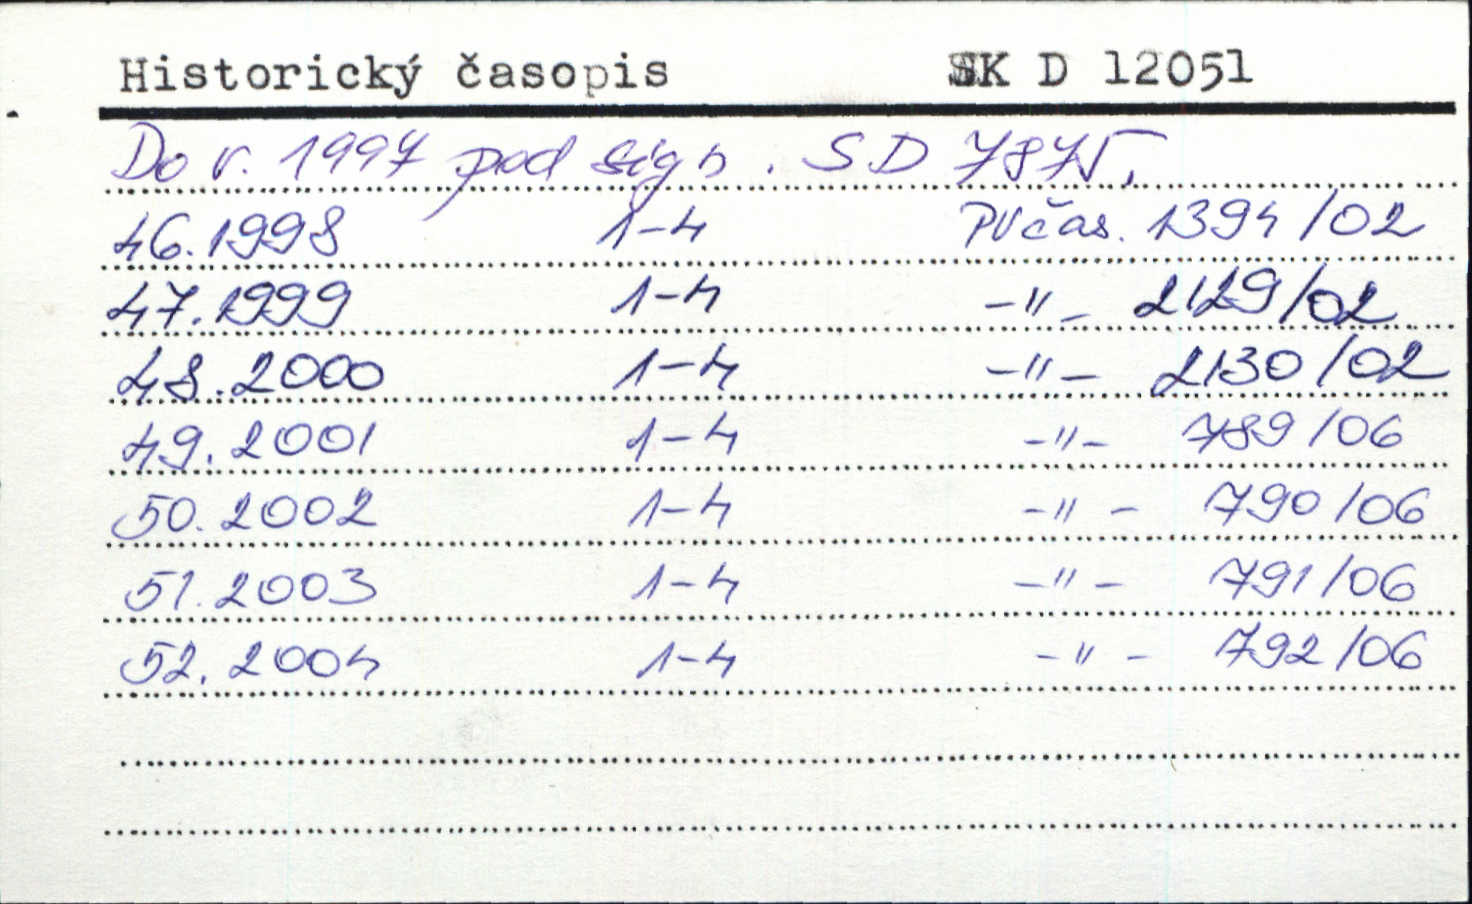 Historický časopis SK D 12051
Do r. 1997 pod sign. SD 7875,
46.1998 1-4 PVčas. 1394/02
47.1999 1-4 -"- 2129/02
48.2000 1-4 -"- 2130/02
49.2001 1-4 -"- 789/06
50.2002 1-4 -"- 790/06
51.2003 1-4 -"- 791/06
52.2004 1-4 -"- 792/06